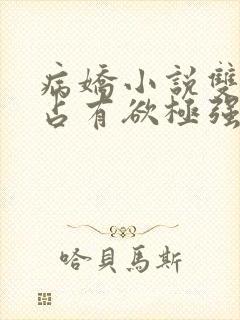 病嬌小說雙
占有欲極強
哈貝馬斯